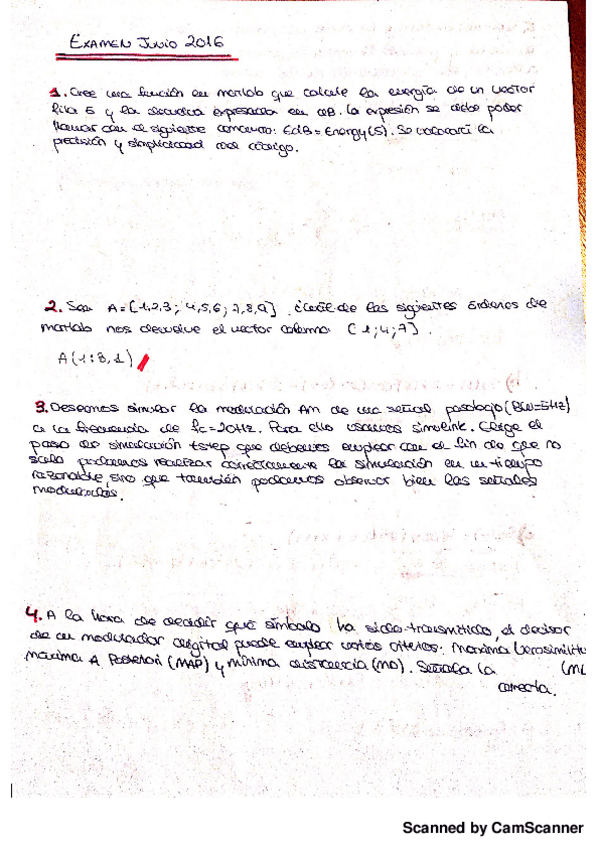 EXAMEN JUNIO 2016
1. Cree una función en matlab que calcule la energía de un vector
fila S y la devuelva expresada en dB. La expresión se debe poder
llamar con el siguiente comando: EdB = Energy(S). Se valorará la
precisión y simplicidad del código.
2. Sea A = [1,2,3; 4,5,6; 7,8,9]. ¿Cuál de las siguientes órdenes de
matlab nos devuelve el vector columna [1;4;7].
A(1:3,1)
3. Deseamos simular la modulación AM de una señal pasobajo (BW=5Hz)
a la frecuencia de fc=20Hz. Para ello usamos simulink. Elige el
paso de simulación tstep que debemos emplear con el fin de que no
solo podamos realizar correctamente la simulación en un tiempo
razonable, sino que también podamos observar bien las señales
moduladas.
4. A la hora de decidir qué símbolo ha sido transmitido, el decisor
de un modulador digital puede emplear varios criterios: maxima verosimilitu
máxima A Posteriori (MAP) y mínima distancia (MD). Señala la (ML
correcta.
Scanned by CamScanner